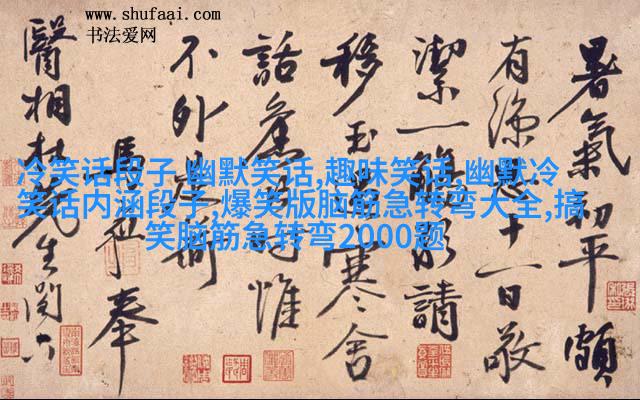 www.shufaai.com
书法爱网
冷笑话段子,幽默笑话,趣味笑话,幽默冷
笑话内涵段子,爆笑版脑筋急转弯大全,搞
笑脑筋急转弯2000题
暑氣初平頗
有涼思十一日敬
潔一觴請
移玉寒舍
話舊惟
不外是荷
奉
醫相杜先生閣下